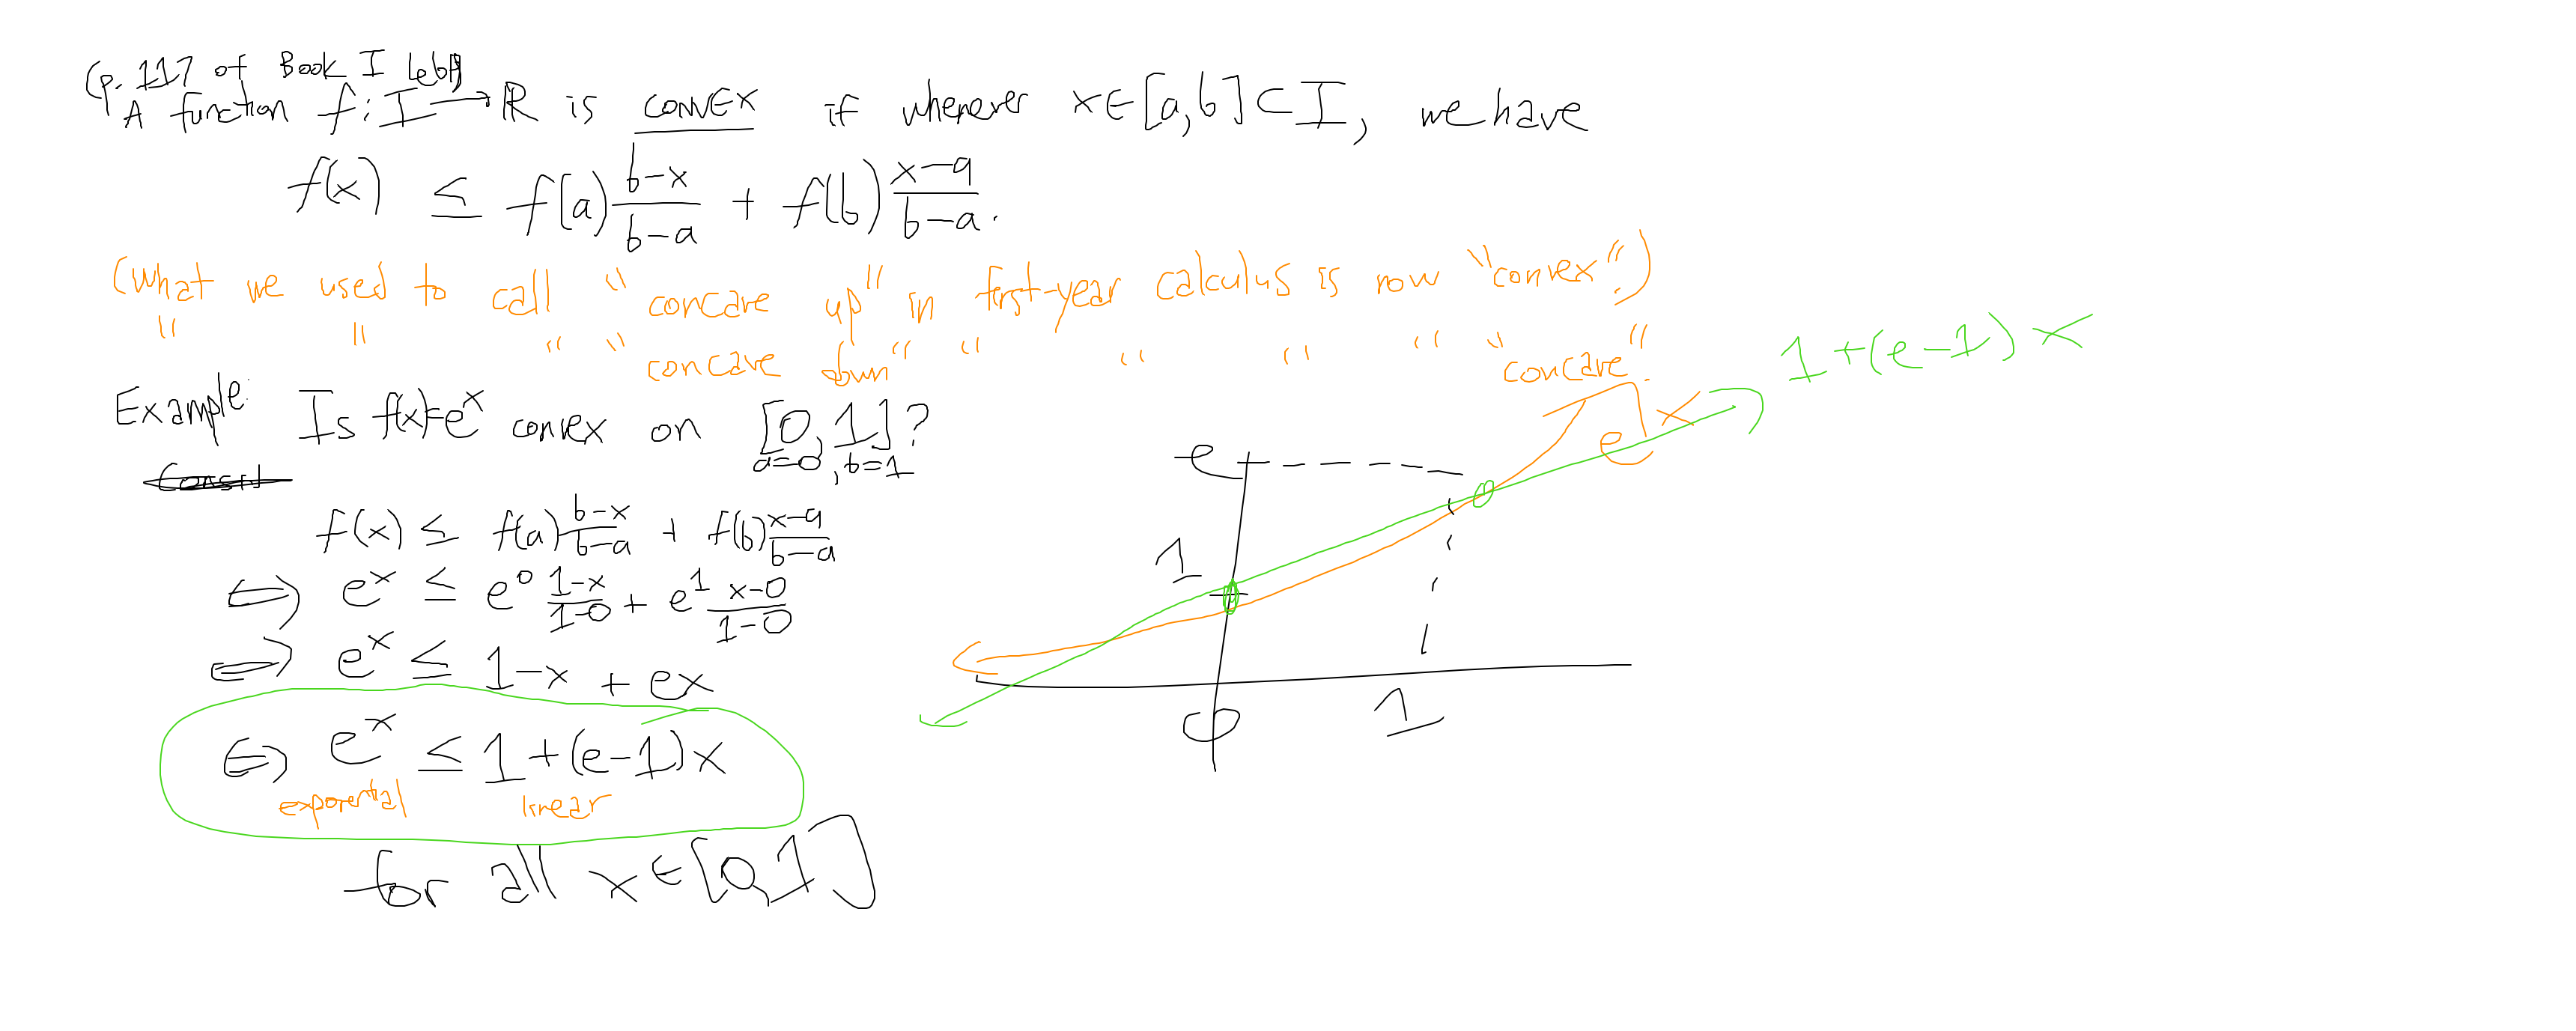 (p. 117 of Book I Lebl)
A function f: I → ℝ is convex if whenever x ∈ [a,b] ⊂ I, we have
f(x) ≤ f(a) (b-x)/(b-a) + f(b) (x-a)/(b-a).
(What we used to call "concave up" in first-year calculus is now "convex".)
" " " "concave down" " " " " "concave".
Example: Is f(x)=e^x convex on [0,1]?
a=0, b=1
f(x) ≤ f(a) (b-x)/(b-a) + f(b) (x-a)/(b-a)
⇔ e^x ≤ e^0 (1-x)/(1-0) + e^1 (x-0)/(1-0)
⇔ e^x ≤ 1-x + ex
⇔ e^x ≤ 1+(e-1)x
exponential linear
for all x ∈ [0,1]
1+(e-1)x
e^x
e
1
0 1